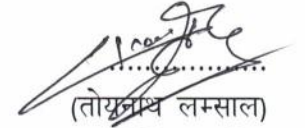 (तोयनाथ लम्साल)